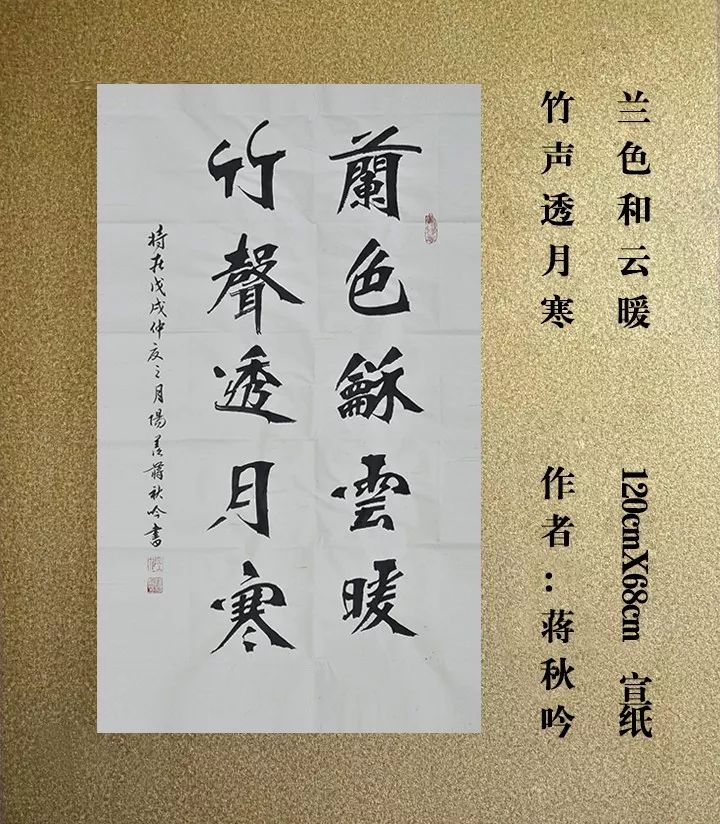 兰色和云暖
竹声透月寒
120cmX68cm 宣纸
作者：蒋秋吟
蘭色龢雲暖
竹聲透月寒
時在戊戌仲夏之月陽羨蔣秋吟書